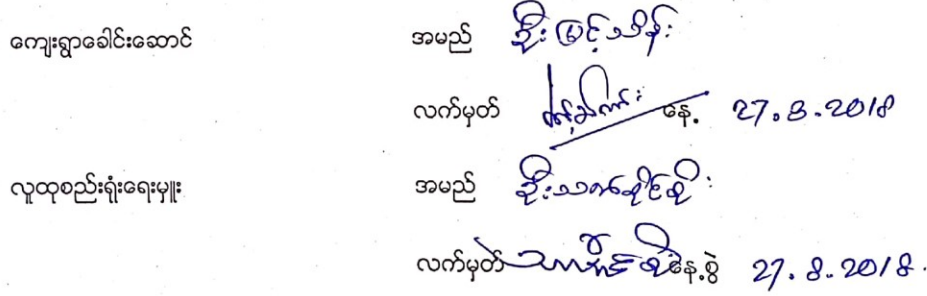 ကျေးရွာခေါင်းဆောင် အမည် ဦးမြင့်သိန်း
လက်မှတ် နေ့ 27.8.2018
လူထုစည်းရုံးရေးမှူး အမည် ဦးသက်ခိုင်စိုး
လက်မှတ် နေ့စွဲ 27.8.2018.